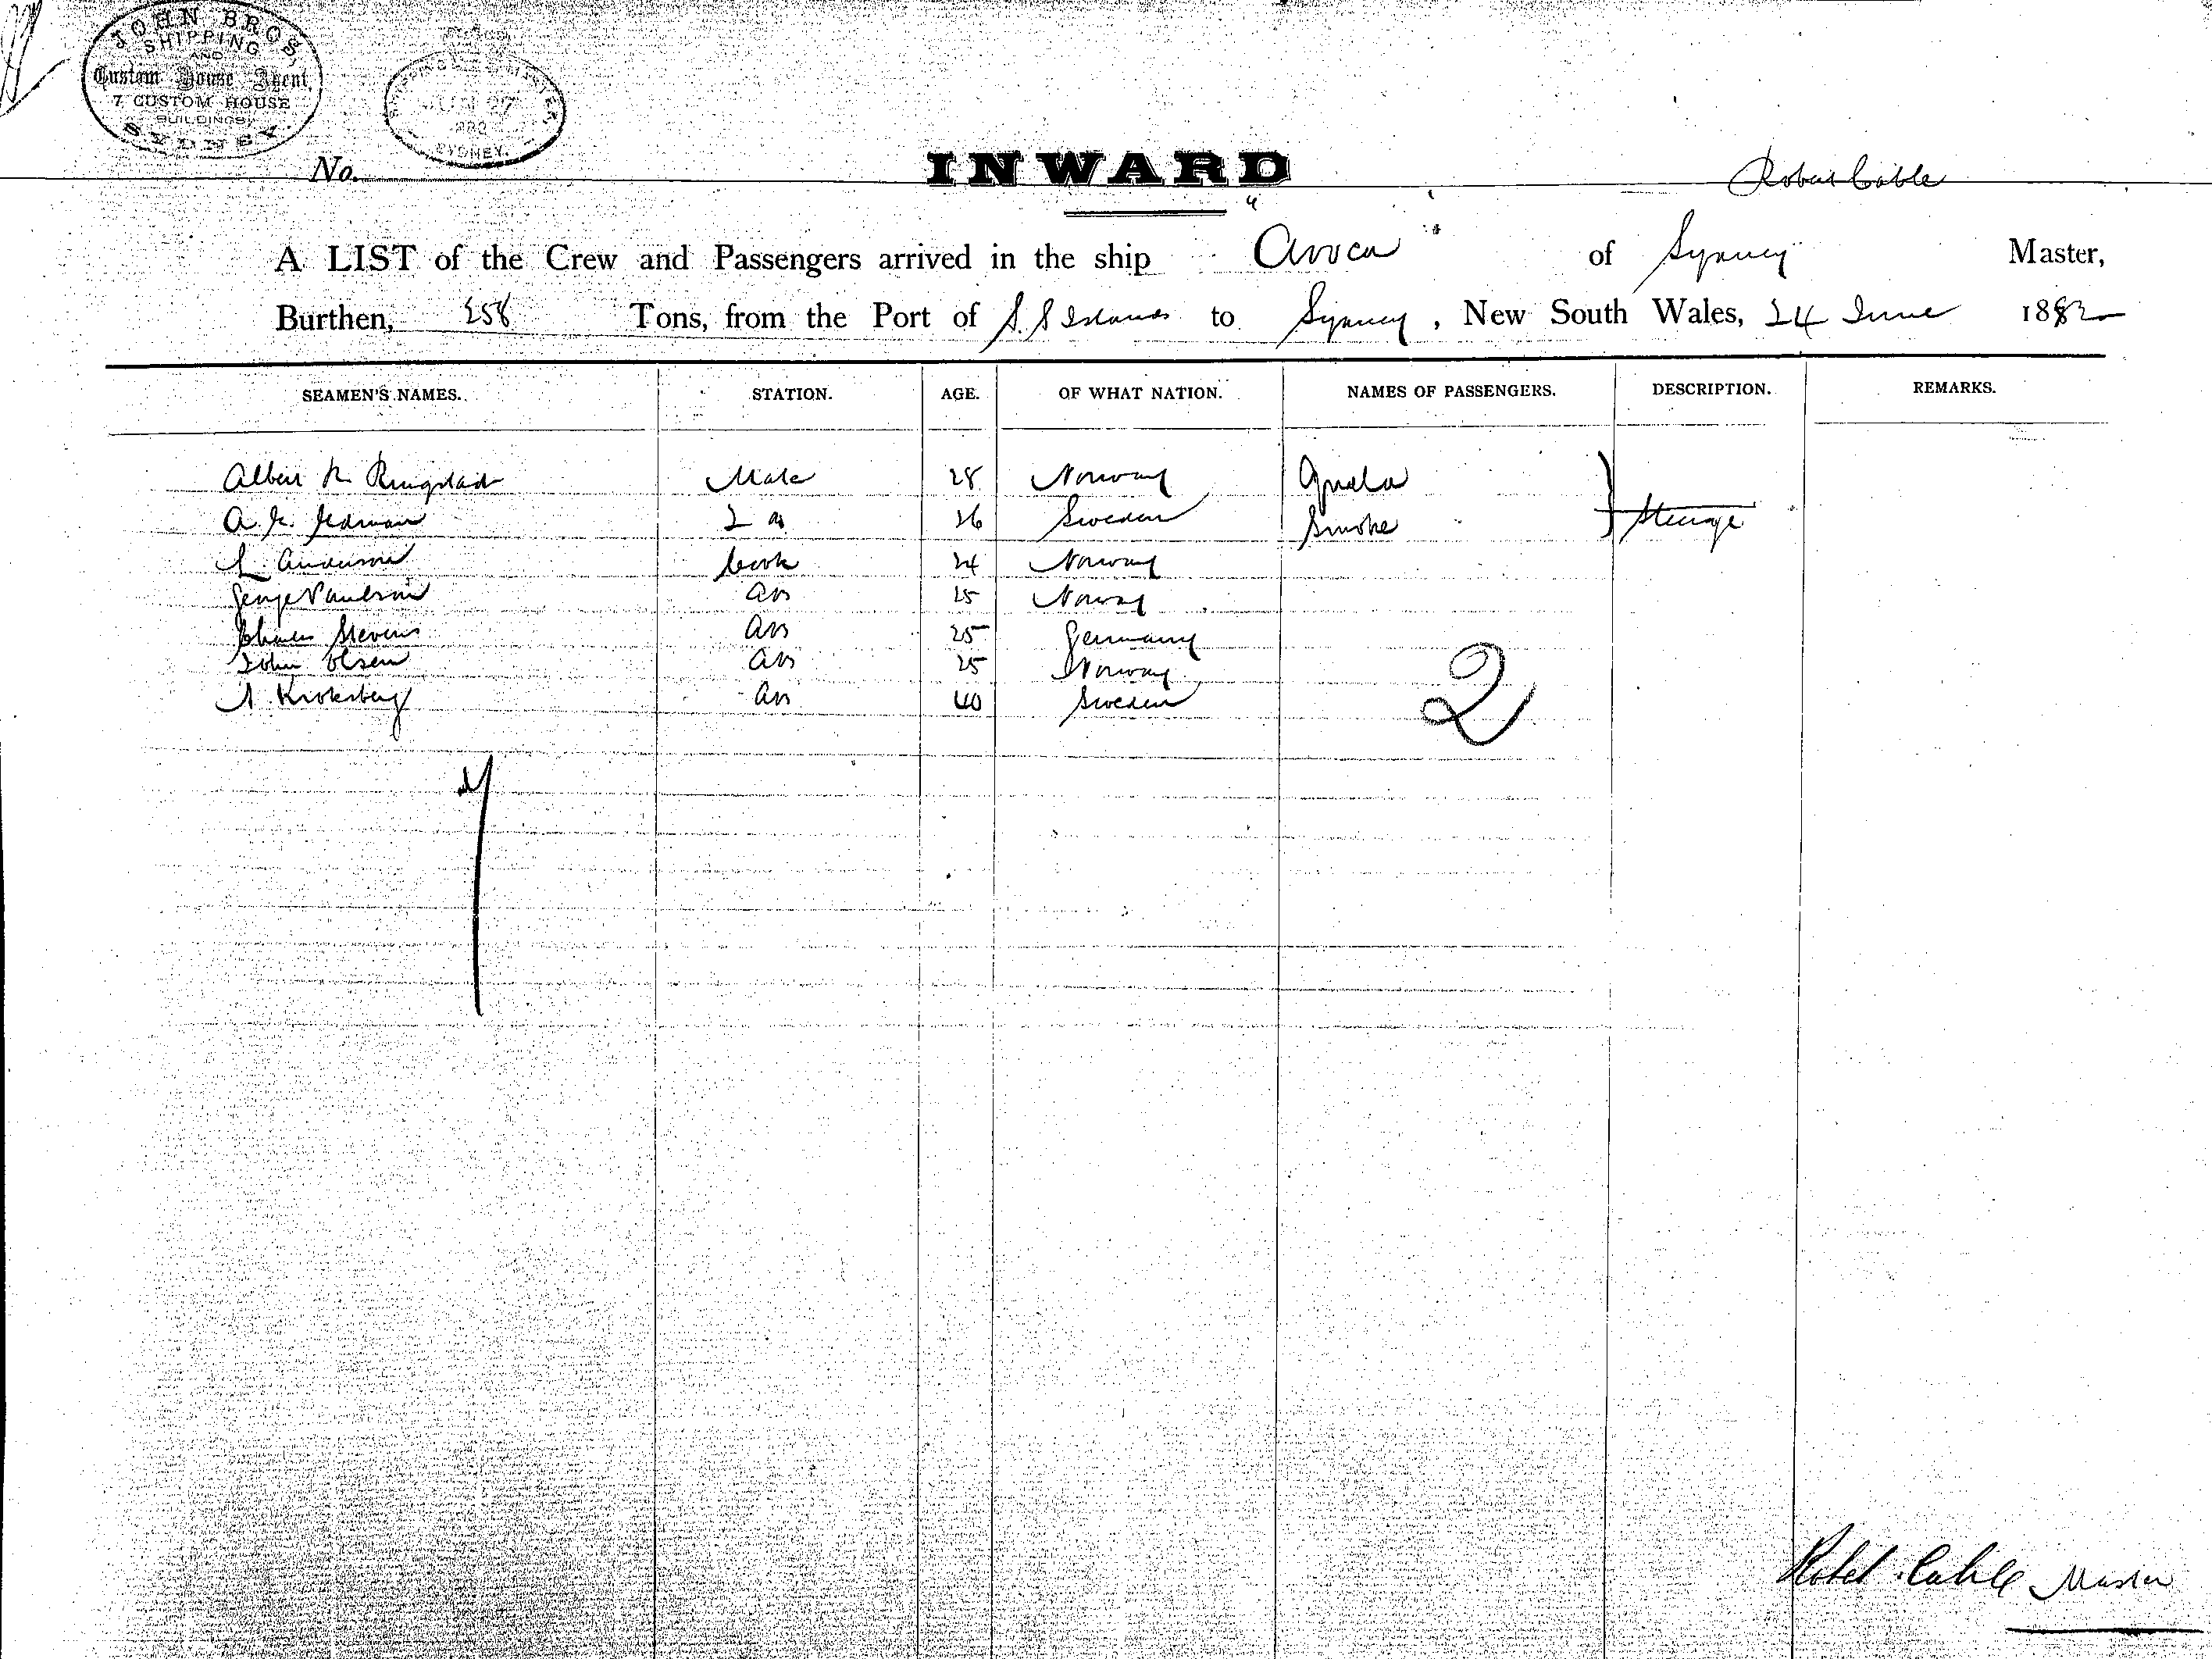 JOHN BROS,
SHIPPING
AND
Custom House Agent,
7 CUSTOM HOUSE
BUILDINGS,
SYDNEY.
SHIPPING MASTER,
JUN 27
882
SYDNEY.
No.
INWARD
Robert Cable
A LIST of the Crew and Passengers arrived in the ship "Avoca" of Sydney Master,
Burthen, 258 Tons, from the Port of S. S Islands to Sydney, New South Wales, 24 June 1882
SEAMEN'S NAMES. STATION. AGE. OF WHAT NATION. NAMES OF PASSENGERS. DESCRIPTION. REMARKS.
Albert Ringstad Mate 28 Norway
A. Hedman 2 " 26 Sweden Smoke Steerage
L. Anderson Cook 24 Norway
George Paulson AB 25 Norway
Charles Stevens AB 25 Germany
John Olsen AB 25 Norway
Kroksberg AB 40 Sweden
2
7
Robt. Cable Master